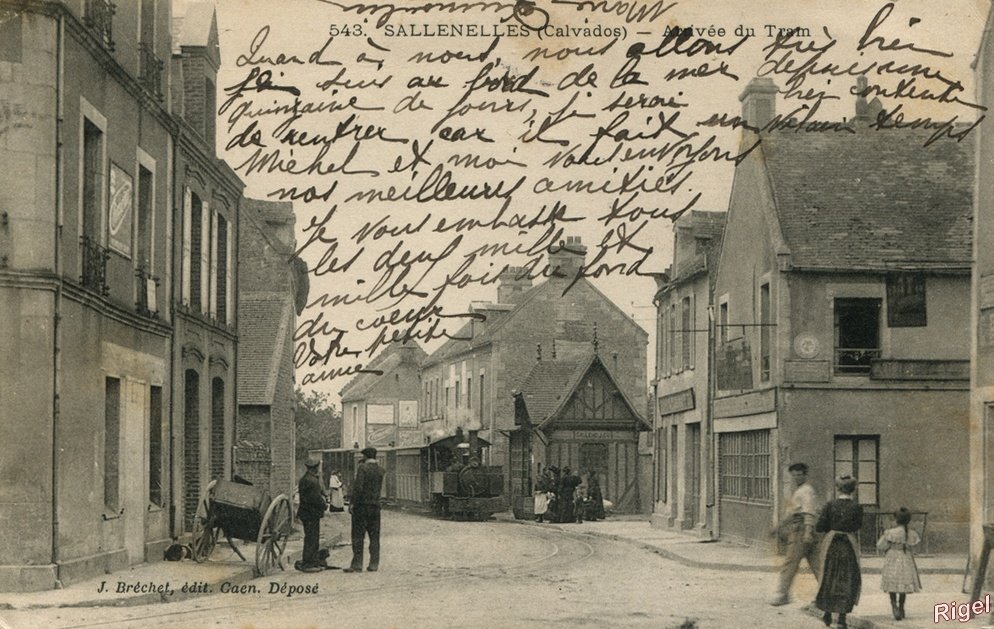 543. SALLENELLES (Calvados) – Arrivée du Tram
Quand à nous, nous allons très bien
suis au bord de la mer depuis une
quinzaine de jours, je serai bien contente
de rentrer car il fait un vilain temps
Michel et moi vous envoyons
nos meilleures amitiés.
Je vous embrasse tous
les deux mille et
mille fois du fond
du coeur
Votre petite
amie
SALLENELLES
J. Bréchet, édit. Caen. Déposé
Rigel